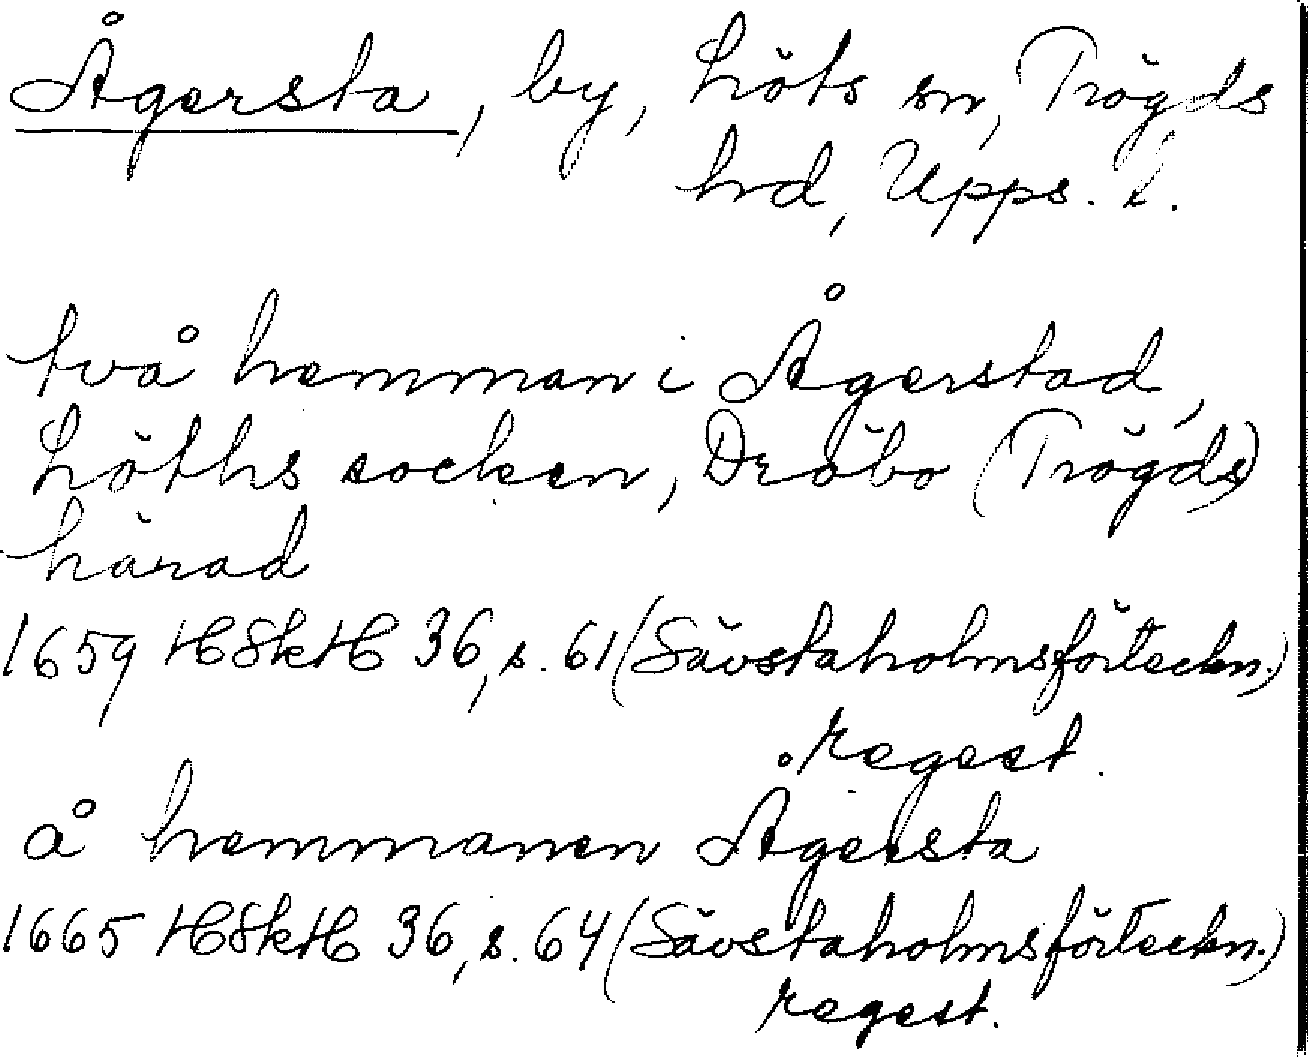 Ågersta, by, Löts sn, Trögds
hrd, Upps. l.
två hemman i Ågerstad,
Löths socken, Dröbo (Trögds)
härad
1659 HSkH 36, s. 61 (Sävstaholmsförteckn.)
regest.
å hemmanen Ågersta
1665 HSkH 36, s. 64 (Sävstaholmsförteckn.)
regest.